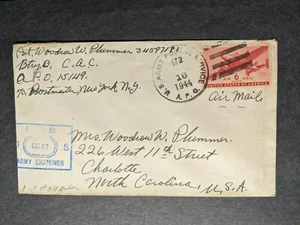 Pvt. Woodrow W. Plummer
Btry B, C.A.C.
A.P.O. 15149.
Postmaster, New York, N.Y.
U.S. ARMY SERVICE
16
1944
A.P.O.
6
UNITED STATES OF AMERICA
Air Mail
S
ARMY EXAMINER
Mrs. Woodrow W. Plummer.
226 West 11th Street
Charlotte
North Carolina, U.S.A.